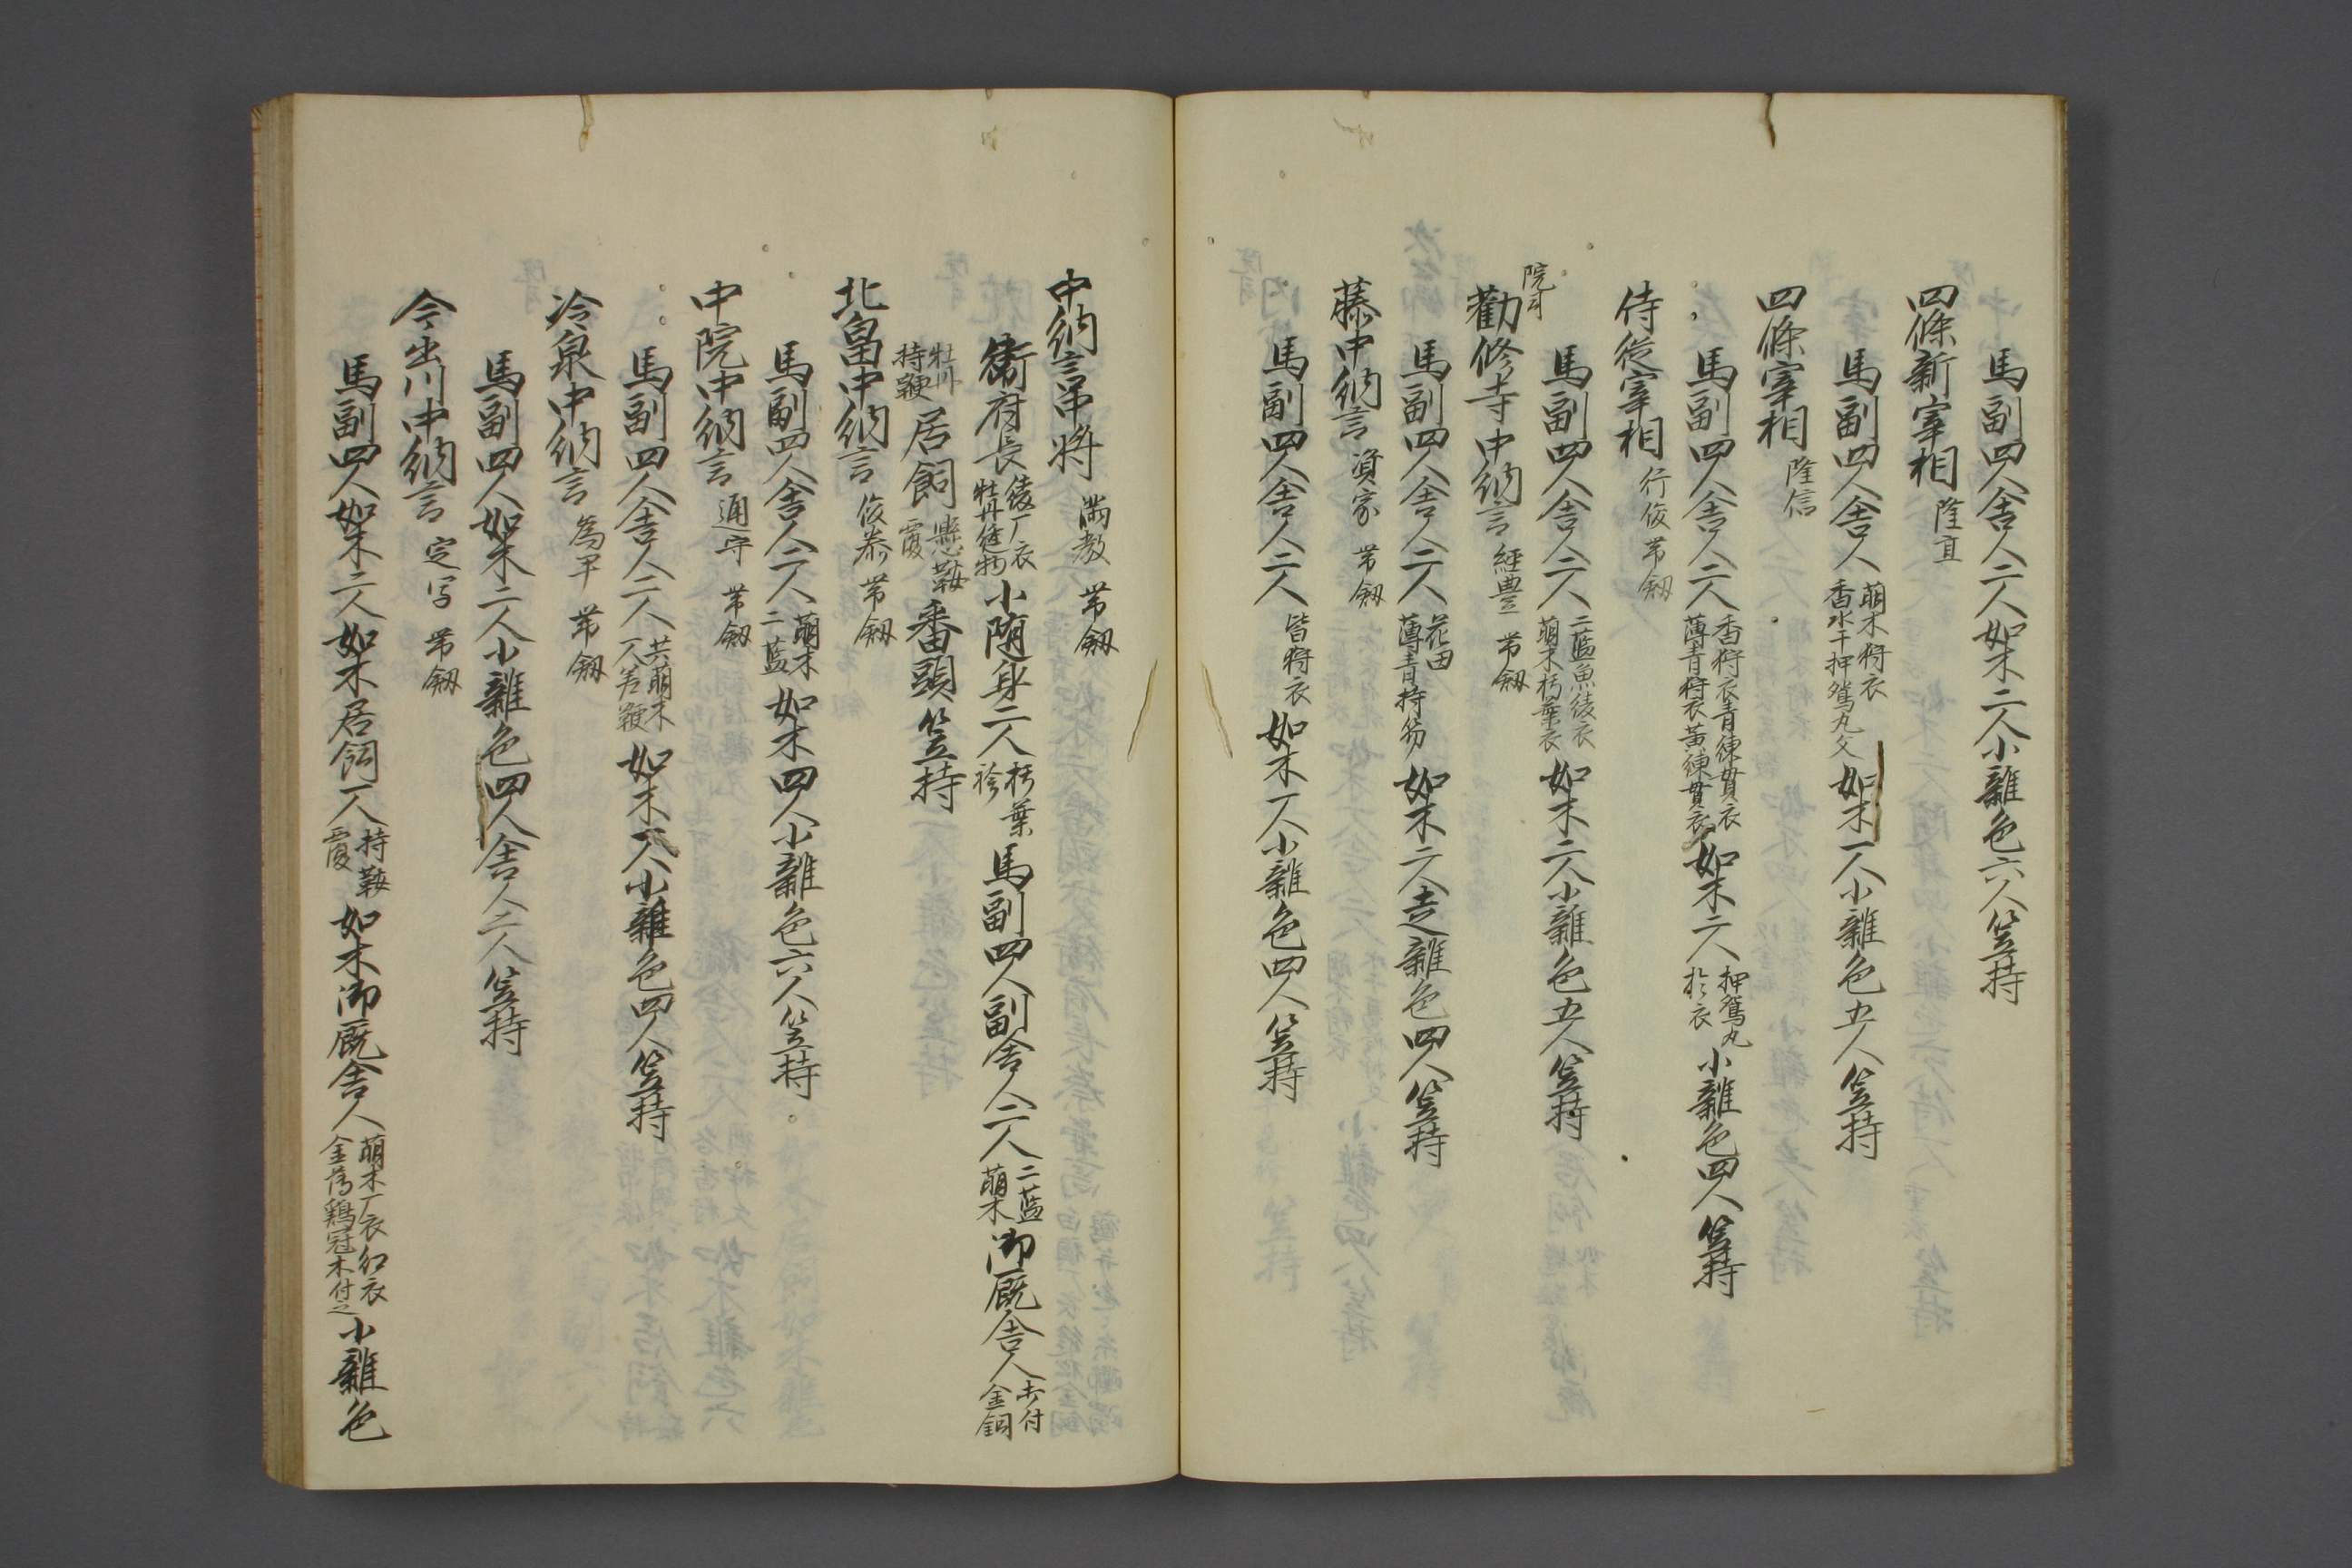 馬副四人舎人二人如木二人小雑色六人笠持
四條新宰相 隆直
馬副四人舎人 萠木狩衣 香水干押鴛丸文 如木一人小雑色五人笠持
四條宰相 隆信
馬副四人舎人二人 香狩衣青練貫衣 薄青狩衣黄練貫衣 如木二人 押鴛丸 於衣 小雑色四人笠持
侍従宰相 行俊 帯釼
馬副四人舎人二人 二藍魚綾衣 萠木朽葉衣 如木二人小雑色五人笠持
院司
勸修寺中納言 經豊 帯釼
馬副四人舎人二人 花田 薄青 如木二人走雑色四人笠持
藤中納言 資家 帯釼
馬副四人舎人二人 皆狩衣 如木一人小雑色四人笠持
中納言中将 満教 帯釼
衞府長 綾厂衣 牡丹縫物 小随身二人 朽葉 袗 馬副四人副舎人二人 二藍 萠木 御厩舎人 付 金銅
持鞭 居飼 懸鞍覆 番頭 笠持
北畠中納言 俊泰 帯釼
馬副四人舎人二人 萠木 二藍 如木四人小雑色六人笠持
中院中納言 通守 帯釼
馬副四人舎人二人 共萠木 一人差鞭 如木 人小雑色四人笠持
冷泉中納言 為尹 帯釼
馬副四人如木二人小雑色四人舎人二人笠持
今出川中納言 帯釼
馬副四人如木二人如木居飼一人 持鞍覆 如木御厩舎人 萠木厂衣紅衣 金薄鶏冠木付之 小雑色